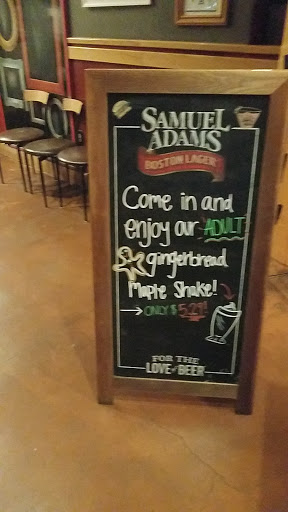 SAMUEL
ADAMS
BOSTON LAGER
Come in and
enjoy our ADULT
gingerbread
Maple Shake!
→ ONLY $5.29!
FOR THE
LOVE of BEER